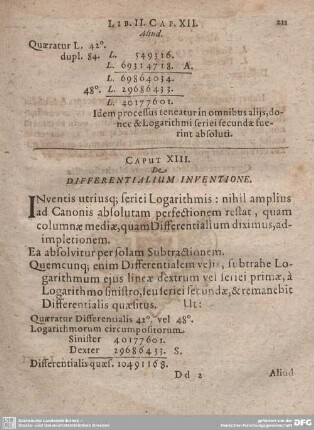 LIB. II. CAP. XII. 211
Aliud.
Quæratur L. 42°.
dupl. 84. L. 549316.
L. 69314718. A.
L. 69864034.
48°. L. 29686433.
L. 40177601.
Idem processus teneatur in omnibus alijs, do-
nec & Logarithmi seriei secundæ fue-
rint absoluti.
CAPUT XIII.
De
DIFFERENTIALIUM INVENTIONE.
INventis utriusq; seriei Logarithmis: nihil amplius
ad Canonis absolutam perfectionem restat, quam
columnæ mediæ, quam Differentialium diximus, ad-
impletionem.
Ea absolvitur per solam Subtractionem.
Quemcunq; enim Differentialem velis, subtrahe Lo-
garithmum ejus lineæ dextrum vel seriei primæ, à
Logarithmo sinistro, seu seriei secundæ, & remanebit
Differentialis quæsitus. Ut:
Quæratur Differentialis 42°. vel 48°.
Logarithmorum circumpositorum.
Sinister 40177601.
Dexter 29686433. S.
Differentialis quæs. 10491168.
Dd 2 Aliud